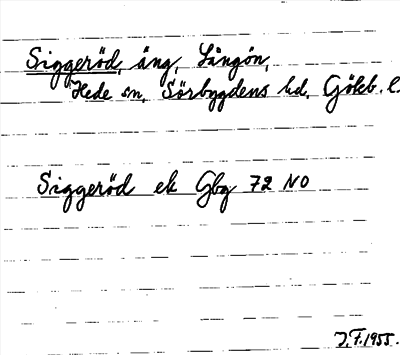 Siggeröd, äng, Långön,
Hede sn, Sörbygdens hd, Göteb. l.
Siggeröd ek Gbg 72 NO
J.F. 1955.